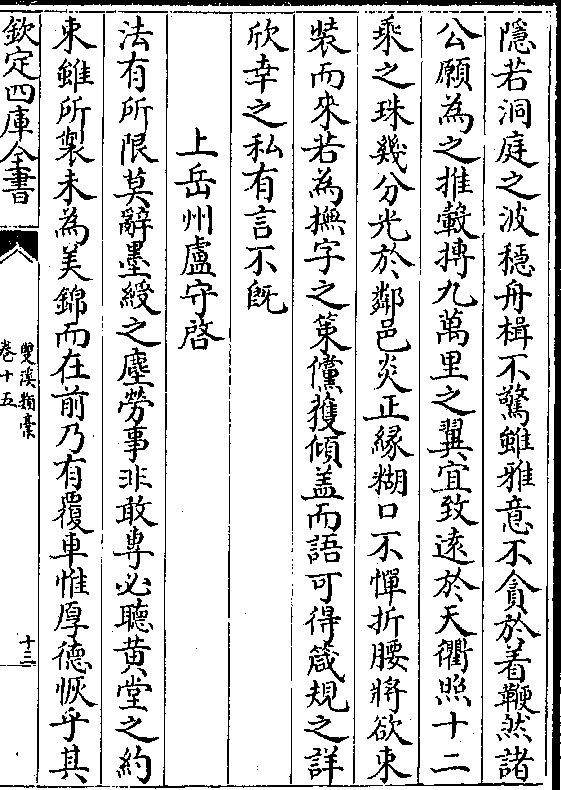 隱若洞庭之波穩舟楫不驚雖雅意不貪於着鞭然諸
公願為之推轂摶九萬里之翼宜致遠於天衢照十二
乘之珠幾分光於鄰邑炎正緣糊口不憚折腰將欲束
裝而來若為撫字之策儻獲傾盖而語可得箴規之詳
欣幸之私有言不旣
上岳州盧守啓
法有所限莫辭墨綬之塵勞事非敢専必聽黄堂之約
束雖所製未為美錦而在前乃有覆車惟厚德恢乎其
欽定四庫全書
雙溪類稾
卷十五
十三